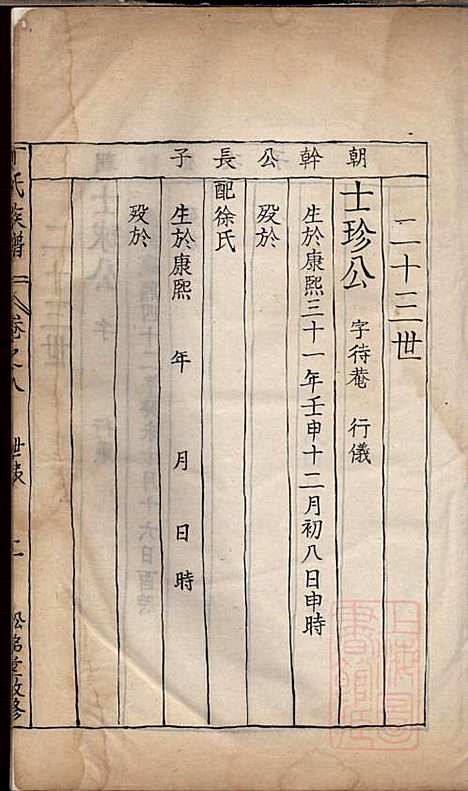 二十三世
朝幹公長子
士珍公 字待菴 行儀
生於康熙三十一年壬申十二月初八日申時
歿於
配徐氏
生於康熙 年 月 日 時
歿於
氏族譜 卷之八 世表 二 敦修